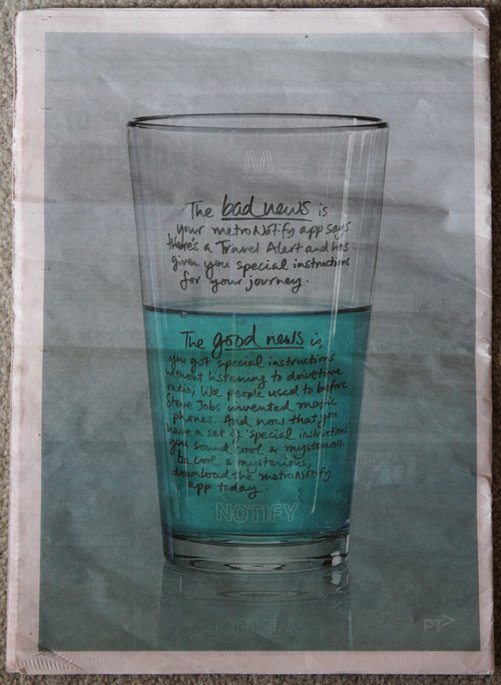 M
The bad news is
your metroNotify app says
there's a Travel Alert and has
given you special instructions
for your journey.
The good news is,
you got special instructions
without listening to drivetime
radio, like people used to before
Steve Jobs invented magic
phones. And now that you
have a set of 'special instructions'
you sound cool & mysterious.
Be cool & mysterious,
download the metroNotify
app today.
NOTIFY
PT>